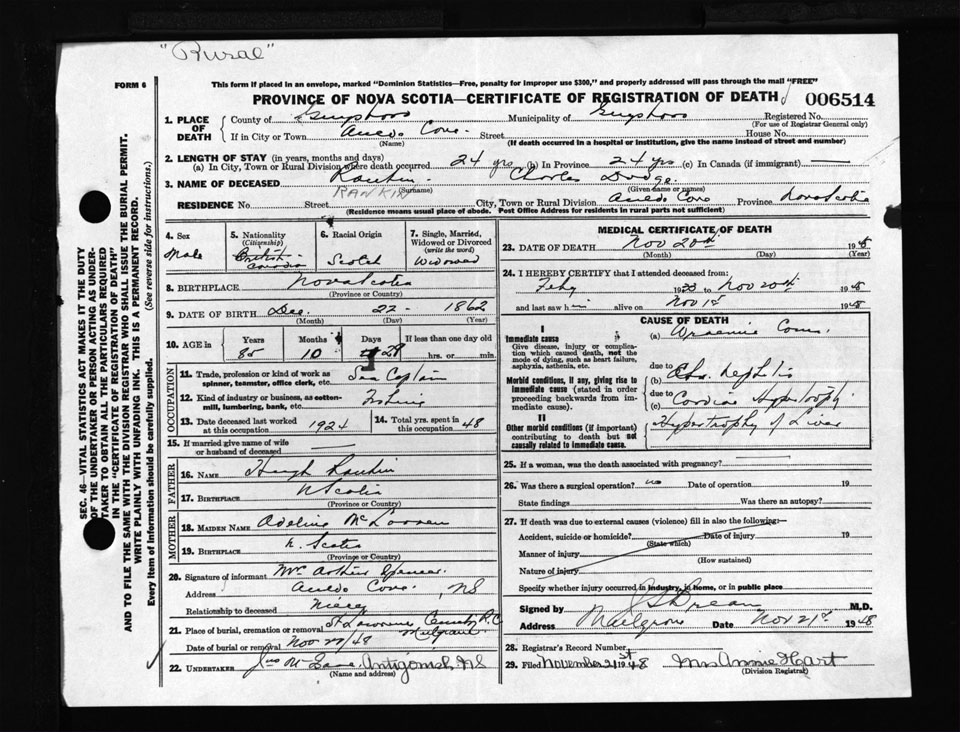 "Rural"
FORM 6
This form if placed in an envelope, marked "Dominion Statistics—Free, penalty for improper use $300," and properly addressed will pass through the mail "FREE"
PROVINCE OF NOVA SCOTIA—CERTIFICATE OF REGISTRATION OF DEATH 006514
1. PLACE OF DEATH
County of Guysboro Municipality of Guysboro Registered No.
(For use of Registrar General only)
If in City or Town Cove Street House No.
(Name) (If death occurred in a hospital or institution, give the name instead of street and number)
2. LENGTH OF STAY (in years, months and days)
(a) In City, Town or Rural Division where death occurred 24 yrs (b) In Province 24 yrs (c) In Canada (if immigrant)
3. NAME OF DECEASED Rankin Charles Dodge
RANKIN (Surname) (Given name or names)
RESIDENCE No. Street City, Town or Rural Division Cove Province Nova Scotia
(Residence means usual place of abode. Post Office Address for residents in rural parts not sufficient)
4. Sex
Male
5. Nationality
(Citizenship)
British
Canadian
6. Racial Origin
Scotch
7. Single, Married, Widowed or Divorced
(write the word)
Widowed
8. BIRTHPLACE Nova Scotia
(Province or Country)
9. DATE OF BIRTH Dec. 22 - 1862
(Month) (Day) (Year)
10. AGE in Years Months Days If less than one day old
85 10 29 hrs. or min.
OCCUPATION
11. Trade, profession or kind of work as spinner, teamster, office clerk, etc. Sea Captain
12. Kind of industry or business, as cotten-mill, lumbering, bank, etc. Fishing
13. Date deceased last worked at this occupation 1924
14. Total yrs. spent in this occupation 48
15. If married give name of wife or husband of deceased
FATHER
16. NAME Hugh Rankin
17. BIRTHPLACE N Scotia
(Province or Country)
MOTHER
18. MAIDEN NAME Adeline
19. BIRTHPLACE N. Scotia
(Province or Country)
20. Signature of informant Mrs Arthur Spencer
Address Cove, NS
Relationship to deceased Niece
21. Place of burial, cremation or removal St Lawrence Cemetry R.C
Mulgrave
Date of burial or removal Nov 22/48
22. UNDERTAKER Antigonish NS
(Name and address)
MEDICAL CERTIFICATE OF DEATH
23. DATE OF DEATH Nov 20th 1948
(Month) (Day) (Year)
24. I HEREBY CERTIFY that I attended deceased from:
Feby to Nov 20th 1948
and last saw h im alive on Nov 1st 1948
CAUSE OF DEATH
I
Immediate cause
Give disease, injury or complication which caused death, not the mode of dying, such as heart failure, asphyxia, asthenia, etc.
(a) Uraemic Coma
Morbid conditions, if any, giving rise to immediate cause (stated in order proceeding backwards from immediate cause).
due to
(b) Chr. Nephritis
due to
(c) Cardiac Hypertrophy
II
Other morbid conditions (if important) contributing to death but not causally related to immediate cause.
Hypertrophy of Liver
25. If a woman, was the death associated with pregnancy?
26. Was there a surgical operation? no Date of operation 19
State findings Was there an autopsy?
27. If death was due to external causes (violence) fill in also the following:—
Accident, suicide or homicide? Date of injury 19
(State which)
Manner of injury
(How sustained)
Nature of injury
Specify whether injury occurred in industry, in home, or in public place
Signed by M.D.
Address Mulgrave Date Nov 21st 1948
28. Registrar's Record Number
29. Filed November 21st 1948 Mrs Annie Hart
(Division Registrar)
SEC. 46—VITAL STATISTICS ACT MAKES IT THE DUTY
OF THE UNDERTAKER OR PERSON ACTING AS UNDER-
TAKER TO OBTAIN ALL THE PARTICULARS REQUIRED
IN THE "CERTIFICATE OF REGISTRATION OF DEATH"
AND TO FILE THE SAME WITH THE DIVISION REGISTRAR WHO SHALL ISSUE THE BURIAL PERMIT.
WRITE PLAINLY WITH UNFADING INK. THIS IS A PERMANENT RECORD.
Every item of Information should be carefully supplied. (See reverse side for instructions.)